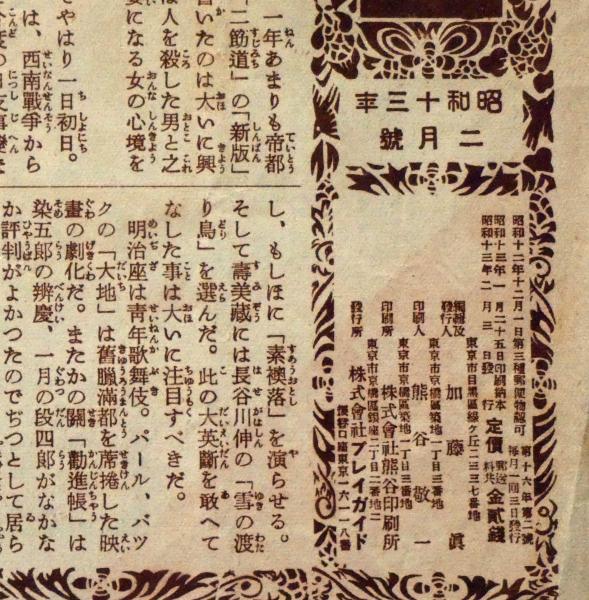 昭和十三年
二月號
昭和十二年十二月一日第三種郵便物認可
第十六年第二號
昭和十三年一月二十五日印刷納本
每月一回三日發行
昭和十三年二月三日發行
定價 郵送料共 金貳錢
東京市目黑區綠ヶ丘二三三七番地
編輯及發行人 加藤眞
東京市京橋區築地一丁目三番地
印刷人 熊谷敬一
東京市京橋區築地一丁目三番地
印刷所 株式會社熊谷印刷所
東京市京橋區銀座二丁目二番地
發行所 株式會社プレイガイド
振替口座東京一六一一八番
一年あまりも帝都
「二筋道」の「新版」
いたのは大いに興
は人を殺した男と之
になる女の心境を
やはり一日初日。
は、西南戰爭から
し、もしほに「素襖落」を演らせる。
そして壽美蔵には長谷川伸の「雪の渡
り鳥」を選んだ。此の大英斷を敢へて
なした事は大いに注目すべきだ。
明治座は靑年歌舞伎。パール、バッ
クの「大地」は舊臘滿都を席捲した映
畫の劇化だ。またかの關「勸進帳」は
染五郎の辨慶、一月の段四郎がなかな
か評判がよかつたのでぢつとして居ら